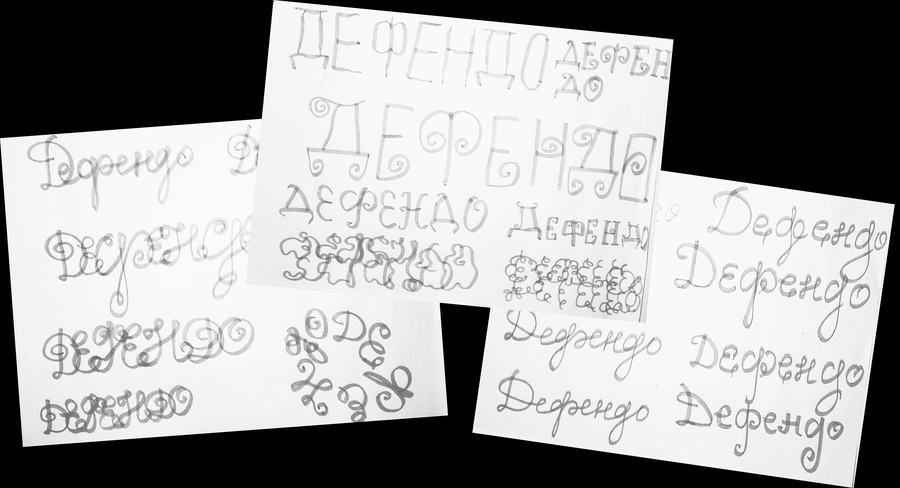 ДЕФЕНДО
ДЕФЕН
ДО
ДЕФЕНДО
ДЕФЕНДО
ДЕФЕНДО
Дефендо
Д
ДЕФЕНДО
ДЕФЕНДО
ДЕФЕНДО
ДЕФЕНДО
Дефендо
Дефендо
Дефендо
Дефендо
Дефендо
Дефендо